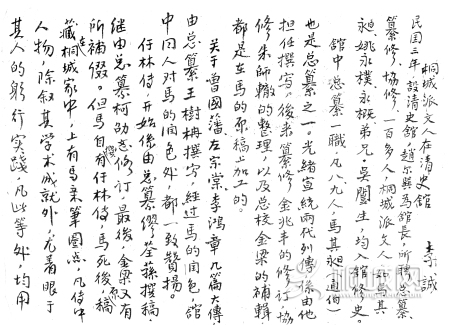 桐城派文人在清史館
李誠
民囯三年，設清史館，趙尔巽為館長，所聘总纂、
纂修、協修，一百多人，桐城派文人，若馬其
昶、姚永樸、永概弟兄、吳闓生，均入館修史。
館中总纂一職凡八九人，馬其昶（通伯）
也是总纂之一。光緒宣統兩代列傳，係由他
担任撰写。後來纂修金兆丰的修订，協
修朱師轍的整理，以及总校金梁的補輯，
都是在馬的原稿上加工的。
关于曾國藩左宗棠李鴻章几篇大傳，
由总纂王樹枏撰写，經过馬的润色，館
中囚人对馬的润色外，都一致赞揚。
任林传，开始係由总纂繆荃孫撰稿，
继由总纂柯劭忞修订，最後，金梁又有
所補傳。但馬自有任林传，馬死後，稿
藏桐城家中，上有馬朱筆圈点，凡传中
人物，除叙其学术成就外，尤着眼于
其人的躬行实踐，凡此等处，均用